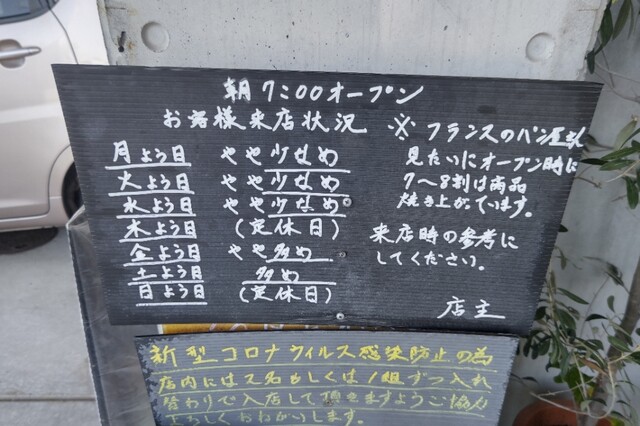 朝 7:00オープン
お客様来店状況
月よう日 やや少なめ
火よう日 やや少なめ
水よう日 やや少なめ
木よう日 (定休日)
金よう日 やや多め
土よう日 多め
日よう日 (定休日)
※ フランスのパン屋さん
見たいにオープン時に
7〜8割は商品
焼き上がっています。
来店時の参考に
してください。
店主
新型コロナウィルス感染防止の為
店内には2名もしくは1組ずつ入れ
替わりで入店して頂きますようご協力
よろしくおねがいします。